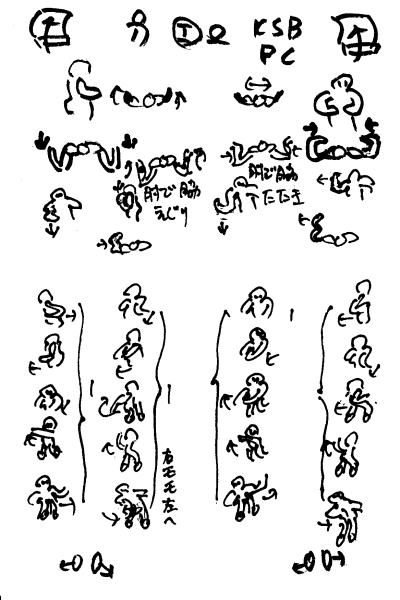 KSB
PC
肘で脇
えぐり
肘で脇
下たたき
右モモ左へ